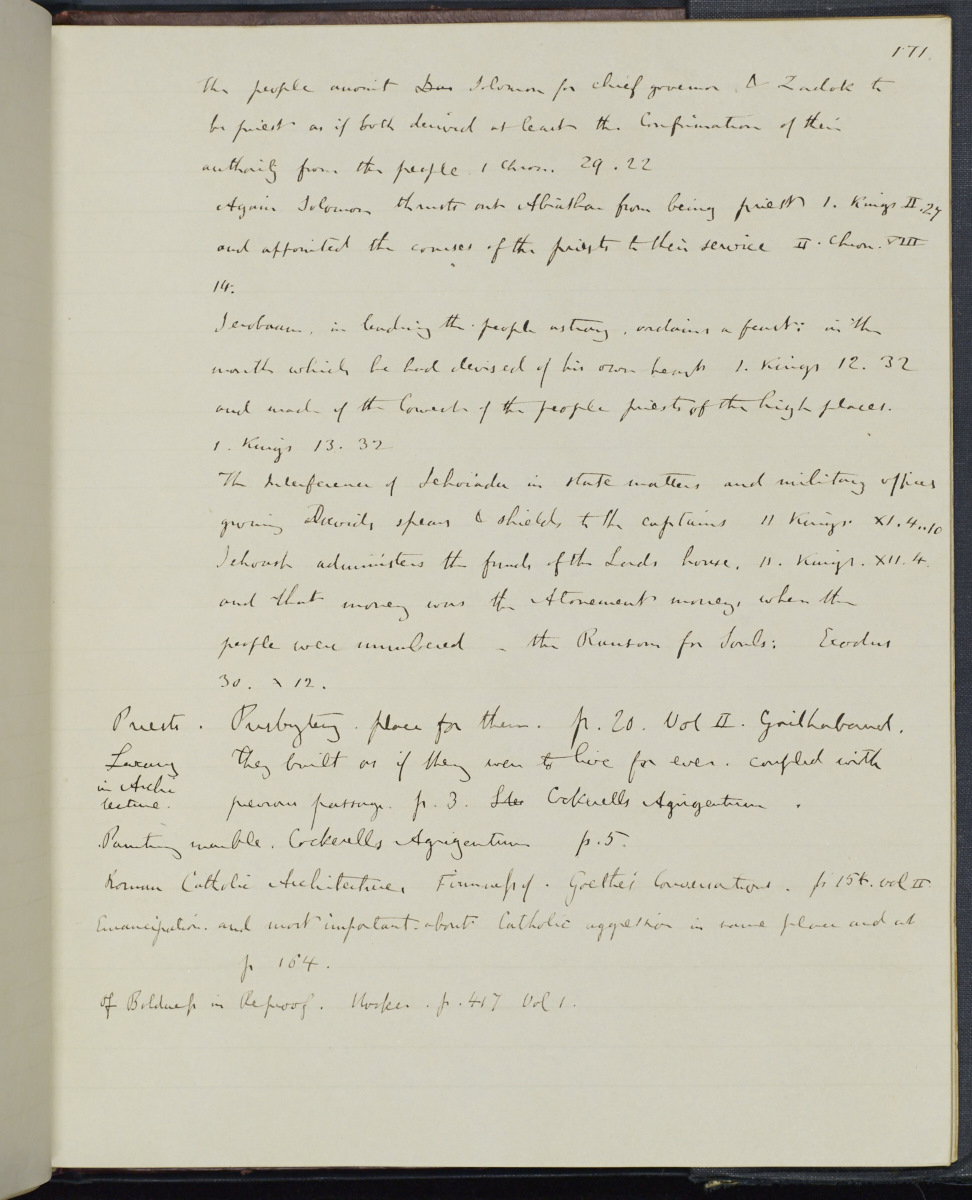 171.
The people anoint Solomon for chief governor & Zadok to
be priest as if both derived at least the Confirmation of their
authority from the people 1 Chron. 29. 22
Again Solomon thrusts out Abiathar from being priest 1. Kings II. 27
and appointed the courses of the priests to their service II. Chron. VIII
14.
Jeroboam, in leading the people astray, ordains a feast: in the
month which he had devised of his own heart 1. Kings 12. 32
and made of the lowest of the people priests of the high places.
1. Kings 13. 32
The Interference of Jehoiada in state matters and military offices
giving Davids spears & shields to the captains 11 Kings. XI. 4..10
Jehoash administers the funds of the Lords house. 11. Kings. XII. 4.
and that money was the Atonement money, when the
people were numbered – the Ransom for Souls: Exodus
30. x 12.
Priests. Presbytery. place for them. p. 20. Vol II. Gailhabaud.
Luxury They built as if they were to live for ever. coupled with
in Archi
tecture. previous passage. p. 3. Cockerells Agrigentum.
Painting marble. Cockerells Agrigentum p. 5.
Roman Catholic Architecture, Finness of. Goethe's Conversations. p 154. vol II
Emancipation. and most important about Catholic aggression in same place and at
p 104.
of Boldness in Reproof. Hooker. p. 417 Vol 1.